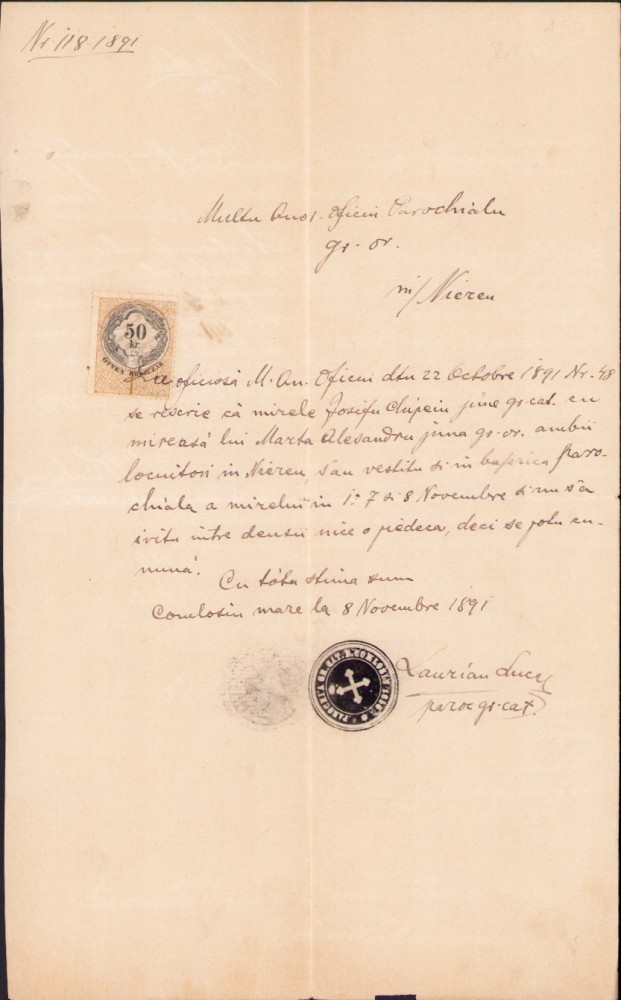 Nr. 118-1891
Multu Onor. Oficiu Parochialu
gr. or.
in/ Niereu
50
kr.
ÖTVEN KRAJCZÁR
La oficiosă M. On. Oficiu dtu 22 Octobre 1891 Nr. 48
se rescrie că mirele Josifu june gr. cat. cu
mireasă lui Marta Alesandru juna gr. or. ambii
locuitori in Niereu, s'au vestitu si in baserica paro-
chiala a mirelui in 1. 7 si 8 Novembre si nu s'a
ivitu intre densii nice o pedeca, deci se potu cu-
nuná.
Cu tóta stima sum
Comlosiu mare la 8 Novembre 1891
Laurian Luca
paroc gr. cat.